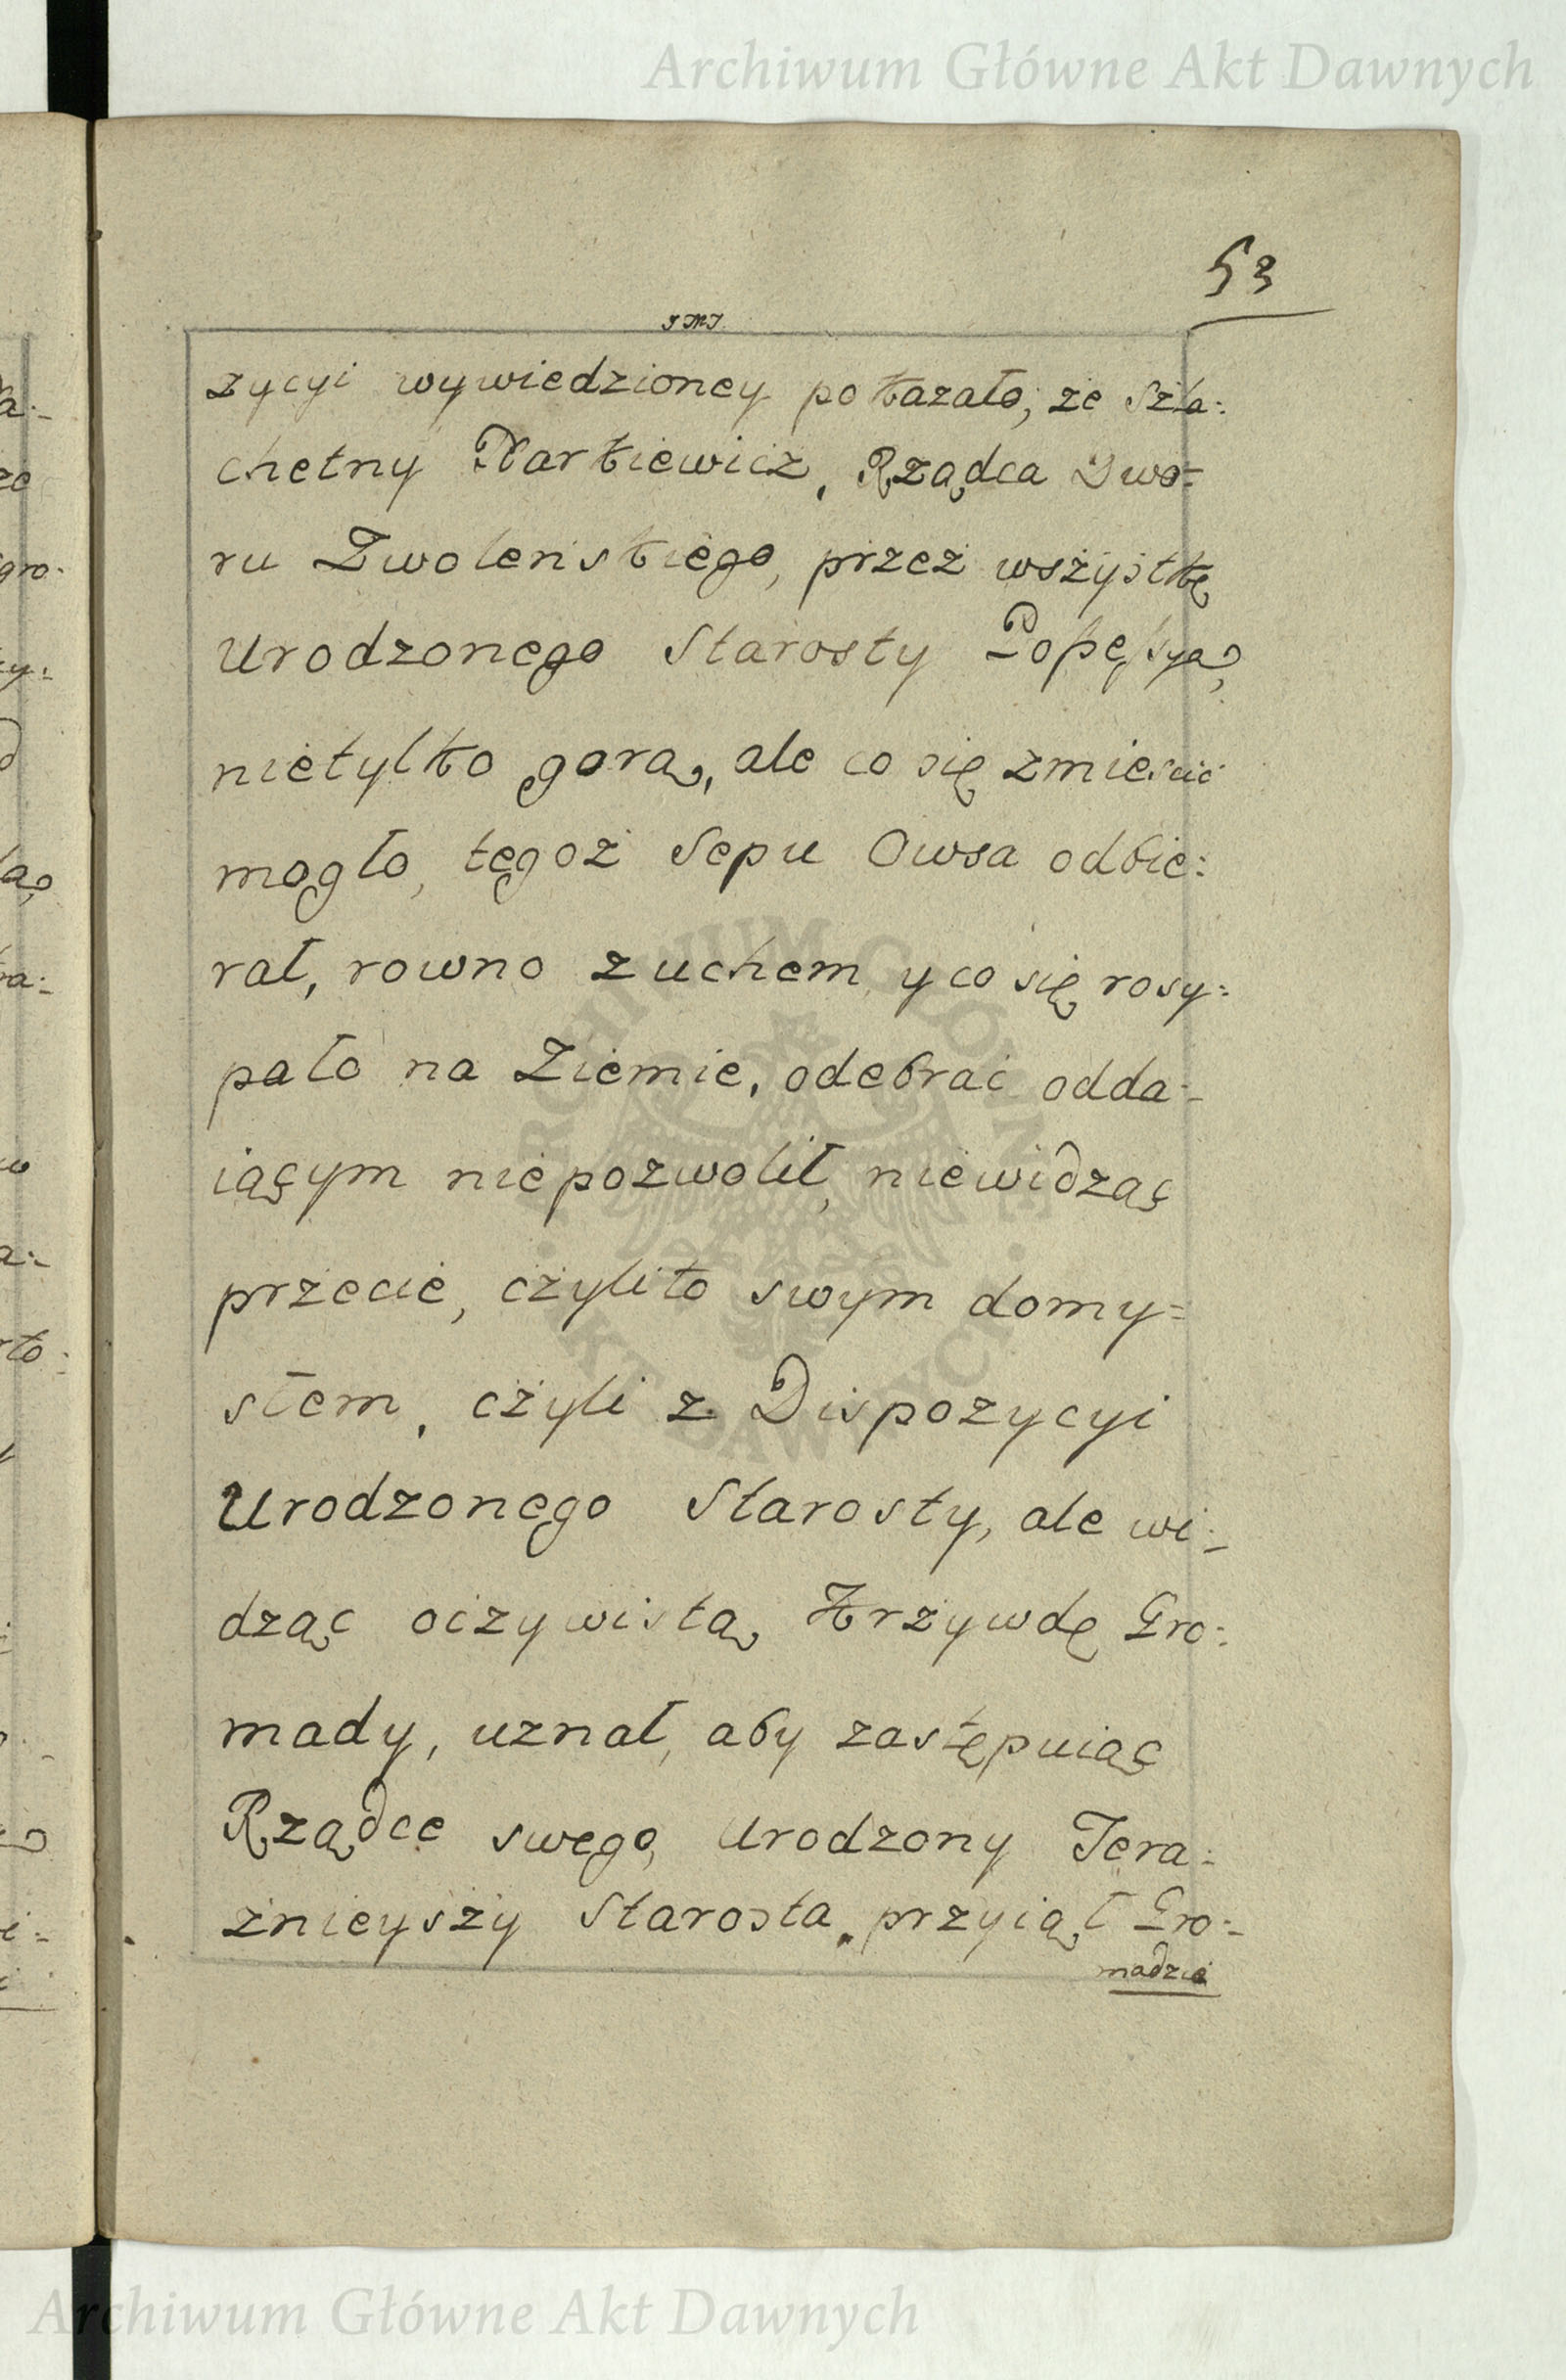 Archiwum Główne Akt Dawnych
53
JMJ
zycyi wywiedzioney pokazało, że Szla:
chetny Narkiewicz, Rządca Dwo:
ru Zwoleńskiego, przez wszystkę
Urodzonego Starosty Possessyą,
nietylko gorą, ale co się zmieścić
mogło, tegoż Sepu Owsa odbie:
rał, rowno z uchem, y co się rosy:
pało na Ziemie, odebrać odda:
iącym niepozwolił, niewidząc
przecie, czyli to swym domy:
słem, czyli z Dispozycyi
Urodzonego Starosty, ale wi:
dząc oczywistą Krzywdę Gro:
mady, uznał, aby zastępuiąc
Rządce swego, Urodzony Tera:
znieyszy Starosta, przyiął Gro:
madzie
Archiwum Główne Akt Dawnych